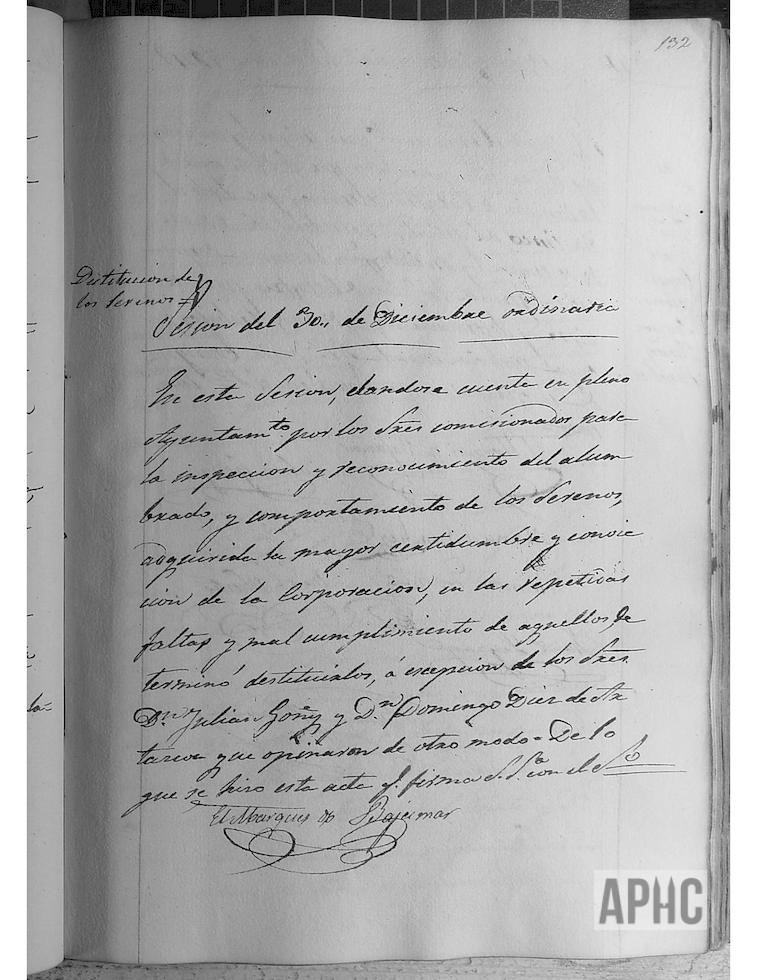 132
Destitucion de
los Serenos
Sesion del 30,, de Diciembre ordinaria
En esta Sesion, dandose cuenta en pleno
Ayuntam.to por los Sres comisionados para
la inspeccion y reconocimiento del alum
brado, y comportamiento de los Serenos,
adquirida la mayor certidumbre y convic
cion de la Corporacion, en las repetidas
faltas y mal cumplimiento de aquellos, de
terminó destituirlos, á escepcion de los Sres
D.n Julian Goñy y D.n Domingo Diez de
que opinaron de otro modo = De lo
que se hizo esta acta q. firma S. S.a con el
El Marques de Bajamar
APHC